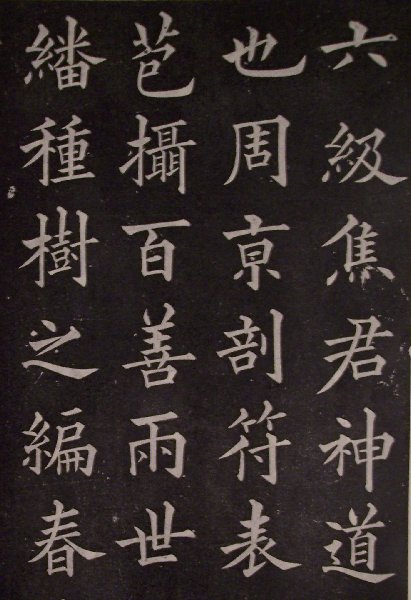 六級焦君神道
也周京剖符表
苞攝百善兩世
繙種樹之編春